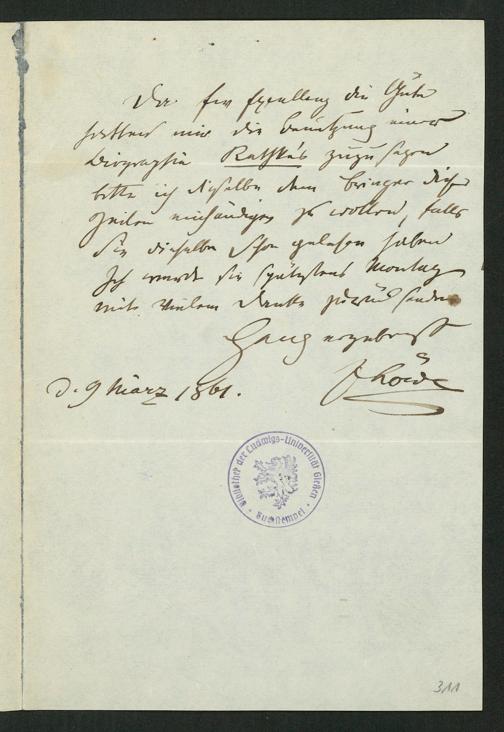 Da Ew Excellenz die Güte
hatten mir die Benützung einer
Biographie Rathke's zuzusagen
bitte ich dieselbe dem Bringer dieser
Zeilen einhändigen zu wollen, falls
Sie dieselbe schon gelesen haben
Ich werde sie spätestens Montag
mit vielem Danke zurück senden
Ganz ergebenst
d. 9 März 1861.
Bibliothek der Ludwigs-Universität Gießen
Buchstempel
311